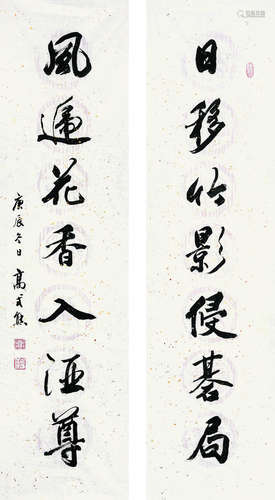 日移竹影侵棋局
風遞花香入酒尊
庚辰冬日 高式熊